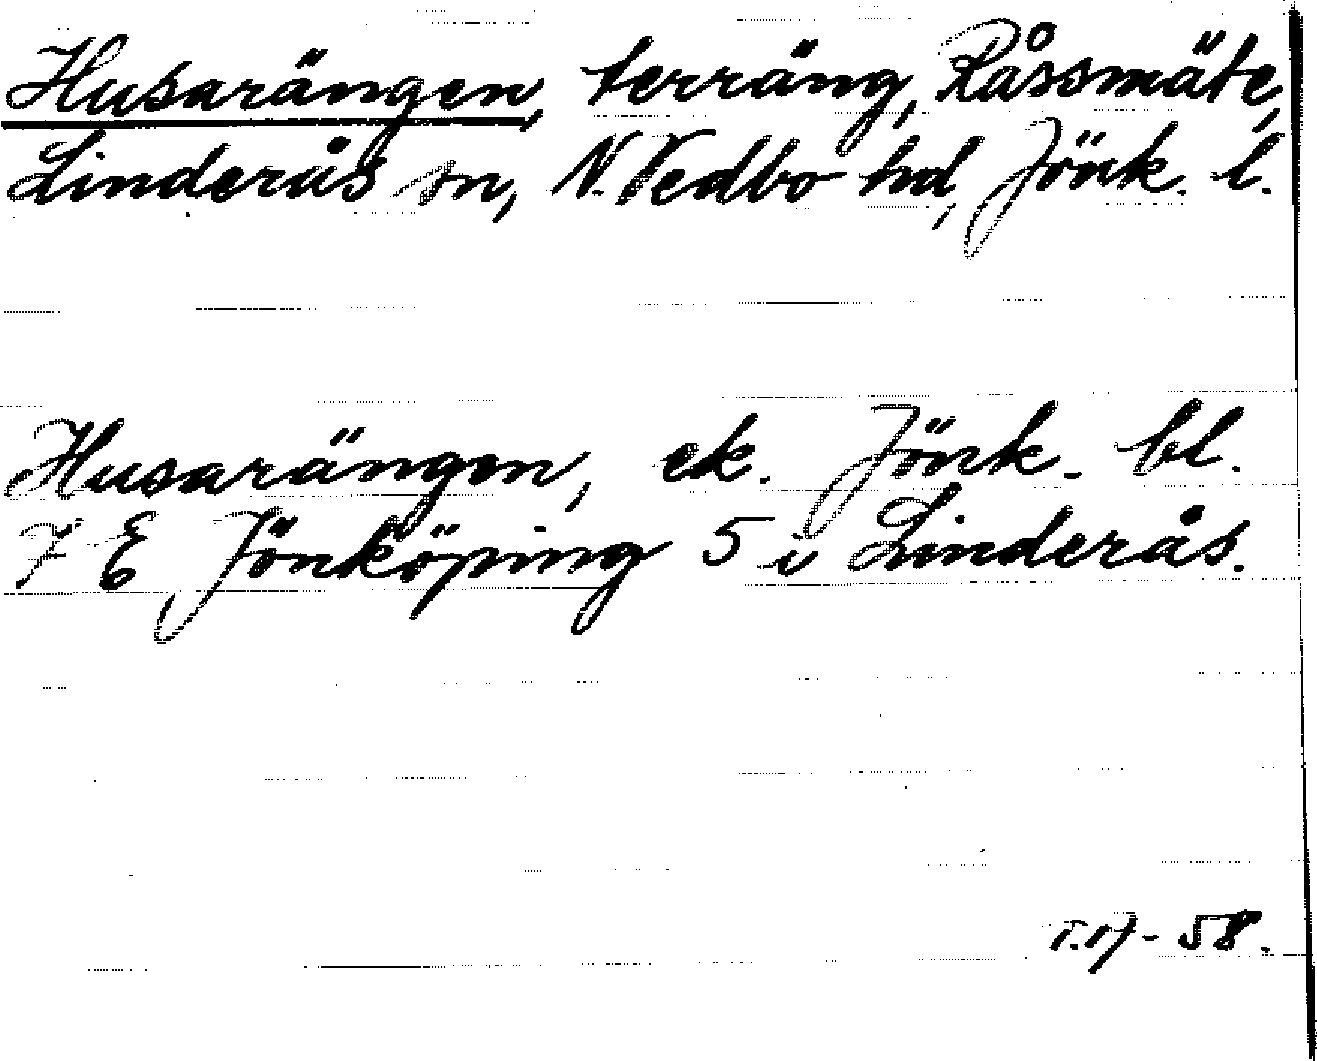 Husarängen, terräng, Råssmäte,
Linderås sn, N. Vedbo hd, Jönk. l.
Husarängen, ek. Jönk. bl.
7 E Jönköping 5 i Linderås.